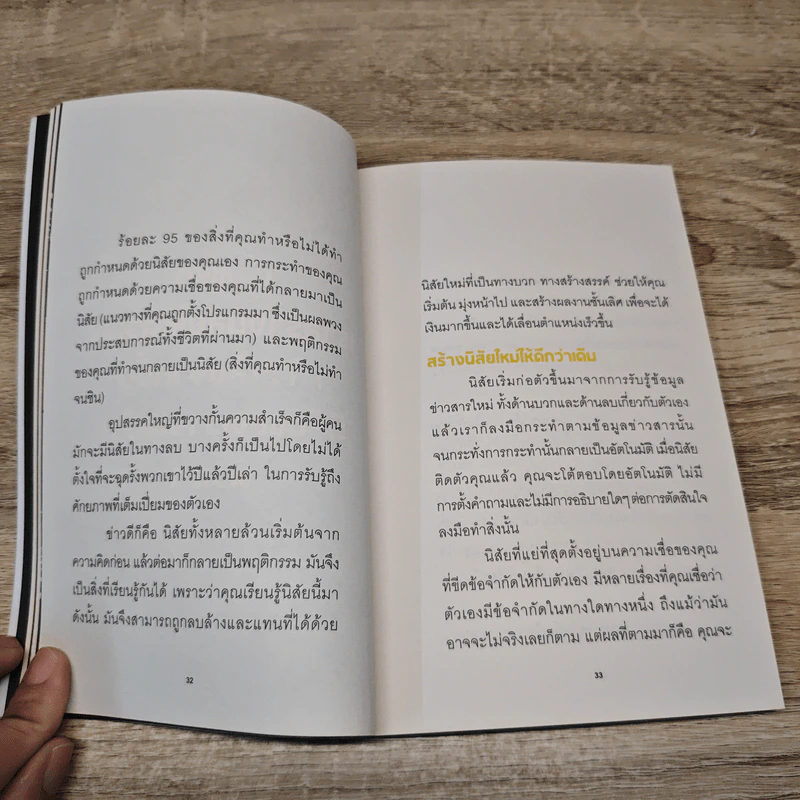 ร้อยละ 95 ของสิ่งที่คุณทำหรือไม่ได้ทำ
ถูกกำหนดด้วยนิสัยของคุณเอง การกระทำของคุณ
ถูกกำหนดด้วยความเชื่อของคุณที่ได้กลายมาเป็น
นิสัย (แนวทางที่คุณถูกตั้งโปรแกรมมา ซึ่งเป็นผลพวง
จากประสบการณ์ทั้งชีวิตที่ผ่านมา) และพฤติกรรม
ของคุณที่ทำจนกลายเป็นนิสัย (สิ่งที่คุณทำหรือไม่ทำ
จนชิน)
อุปสรรคใหญ่ที่ขวางกั้นความสำเร็จก็คือผู้คน
มักจะมีนิสัยในทางลบ บางครั้งก็เป็นไปโดยไม่ได้
ตั้งใจที่จะฉุดรั้งพวกเขาไว้ปีแล้วปีเล่า ในการรับรู้ถึง
ศักยภาพที่เต็มเปี่ยมของตัวเอง
ข่าวดีก็คือ นิสัยทั้งหลายล้วนเริ่มต้นจาก
ความคิดก่อน แล้วต่อมาก็กลายเป็นพฤติกรรม มันจึง
เป็นสิ่งที่เรียนรู้กันได้ เพราะว่าคุณเรียนรู้นิสัยนี้มา
ดังนั้น มันจึงสามารถถูกลบล้างและแทนที่ได้ด้วย
32
นิสัยใหม่ที่เป็นทางบวก ทางสร้างสรรค์ ช่วยให้คุณ
เริ่มต้น มุ่งหน้าไป และสร้างผลงานชั้นเลิศ เพื่อจะได้
เงินมากขึ้นและได้เลื่อนตำแหน่งเร็วขึ้น
สร้างนิสัยใหม่ให้ดีกว่าเดิม
นิสัยเริ่มก่อตัวขึ้นมาจากการรับรู้ข้อมูล
ข่าวสารใหม่ ทั้งด้านบวกและด้านลบเกี่ยวกับตัวเอง
แล้วเราก็ลงมือกระทำตามข้อมูลข่าวสารนั้น
จนกระทั่งการกระทำนั้นกลายเป็นอัตโนมัติ เมื่อนิสัย
ติดตัวคุณแล้ว คุณจะโต้ตอบโดยอัตโนมัติ ไม่มี
การตั้งคำถามและไม่มีการอธิบายใดๆ ต่อการตัดสินใจ
ลงมือทำสิ่งนั้น
นิสัยที่แย่ที่สุดตั้งอยู่บนความเชื่อของคุณ
ที่ขีดข้อจำกัดให้กับตัวเอง มีหลายเรื่องที่คุณเชื่อว่า
ตัวเองมีข้อจำกัดในทางใดทางหนึ่ง ถึงแม้ว่ามัน
อาจจะไม่จริงเลยก็ตาม แต่ผลที่ตามมาก็คือ คุณจะ
33